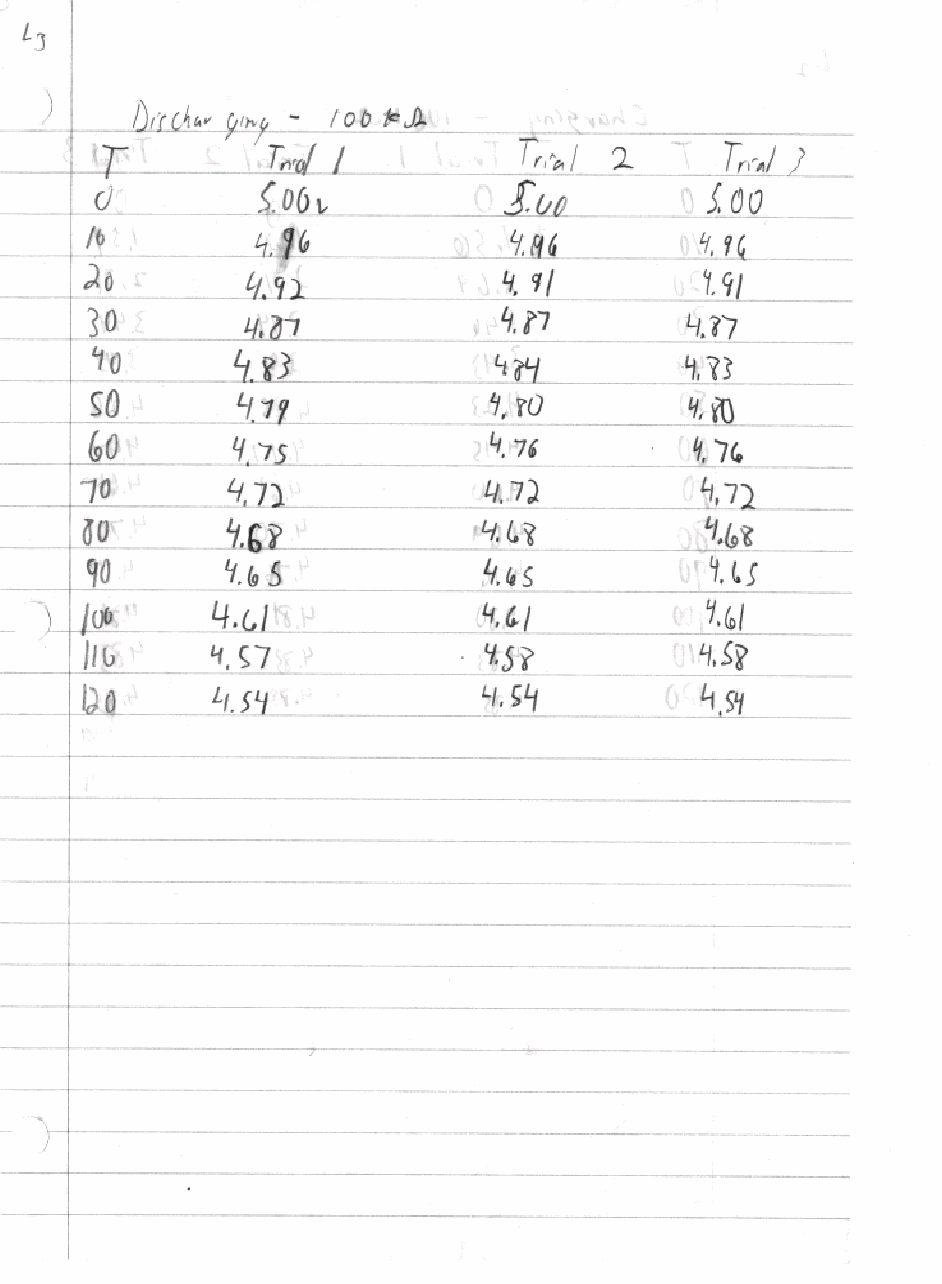 L3
Discharging - 100 kΩ
T Trial 1 Trial 2 Trial 3
0 5.00v 5.00 5.00
10 4.96 4.96 4.96
20 4.92 4.91 4.91
30 4.87 4.87 4.87
40 4.83 4.84 4.83
50 4.79 4.80 4.80
60 4.75 4.76 4.76
70 4.72 4.72 4.72
80 4.68 4.68 4.68
90 4.65 4.65 4.65
100 4.61 4.61 4.61
110 4.57 4.58 4.58
120 4.54 4.54 4.54